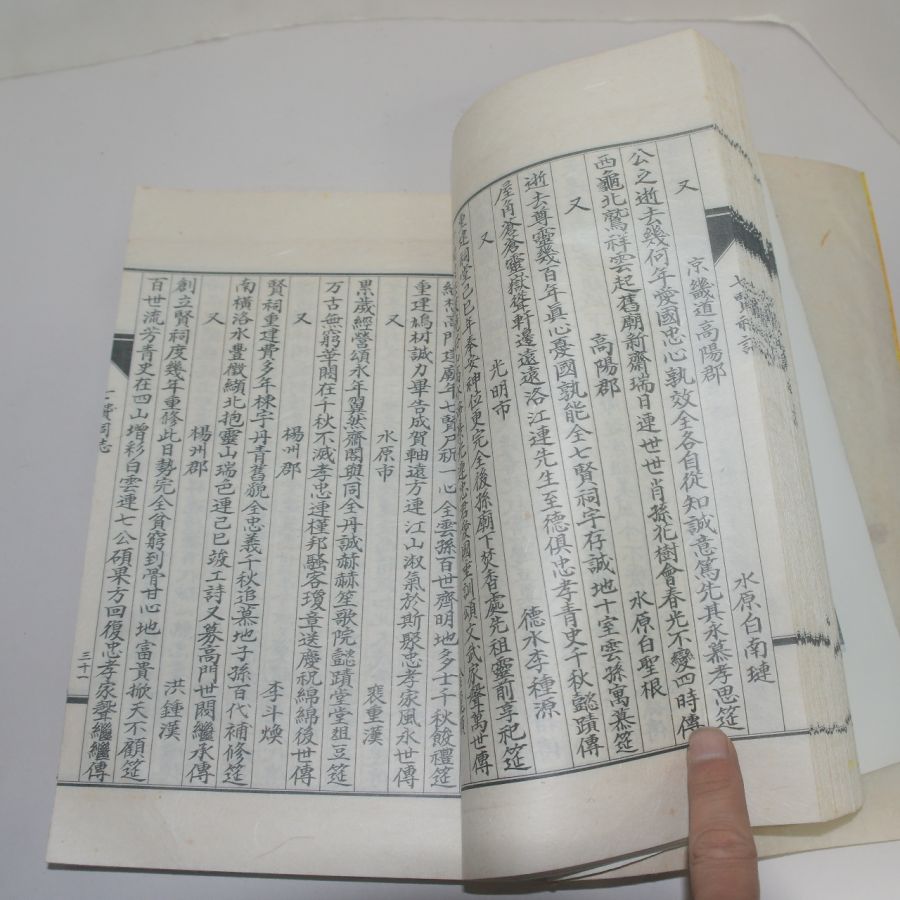 又 京畿道高陽郡 水原白南璉
公之逝去幾何年愛國忠心孰效全各自從知誠意篤先其永慕孝思筵
西龜北鷲祥雲起舊廟新齋瑞日連世世肖孫花樹會春光不變四時傳
又 高陽郡 水原白聖根
逝去尊靈幾百年眞心憂國孰能全七賢祠宇存誠地十室雲孫寓慕筵
屋角蒼蒼靈嶽從軒邊遠遠洛江連先生至德俱忠孝青史千秋懿蹟傳
又 光明市 德水李種源
重建祠堂己巳年奉安神位更完全後孫廟下焚香處先祖靈前享祀筵
頌文武家聲萬世傳
想高門建廟年七賢尸祝一心全雲孫百世齊明地多士千秋餕禮筵
重建鳩材誠力畢告成賀軸遠方連江山淑氣於斯聚忠孝家風永世傳
又 水原市 裵重漢
累歲經營頌永年翼然齋閣與同全丹誠赫赫笙歌院懿蹟堂堂俎豆筵
万古無窮華閥在千秋不滅孝忠連槿邦騷客瓊章送慶祝綿綿後世傳
又 楊州郡 李斗煥
賢祠重建費多年棟宇丹青舊貌全忠義千秋追慕地子孫百代補修筵
南橫洛水豊徵纈北抱靈山瑞色連己巳竣工詩又募高門世閥繼承傳
又 楊州郡 洪鍾漢
創立賢祠度幾年重修此日勢完全貧窮到骨甘心地富貴掀天不願筵
百世流芳青史在四山增彩白雲連七公碩果方回復忠孝家聲繼繼傳
三十一